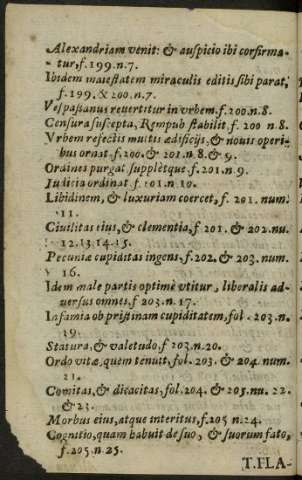 Alexandriam venit: & auspicio ibi confirma-
tur, f.199.n.7.
Ibidem maiestatem miraculis editis sibi parat,
f.199. & 200.n.7.
Vespasianus reuertitur in vrbem.f.200.n.8.
Censura suscepta, Rempub stabilit f. 200 n.8.
Vrbem refectis multis ædificijs, & nouis operi-
bus ornat f.200.& 201.n.8.& 9.
Ordines purgat supplétque.f.201.n.9.
Iudicia ordinat f.201.n.10.
Libidinem, & luxuriam coercet, f. 201. num.
11.
Ciuilitas eius, & clementia, f 201. & 202.nu.
12.13.14.15.
Pecuniæ cupiditas ingens, f.202, & 203. num.
16.
Idem male partis optimè vtitur, liberalis ad-
uersus omnes, f 203.n.17.
Infamia ob pristinam cupiditatem, fol. 203.n.
19.
Statura, & valetudo, f 203.n.20.
Ordo vitæ, quem tenuit, fol. 203. & 204. num.
21.
Comitas, & dicacitas, fol.204. & 205.nu. 22.
& 23.
Morbus eius, atque interitus, f.205 n.24.
Cognitio, quam habuit de suo, & suorum fato,
f.205.n.25.
T.FLA-